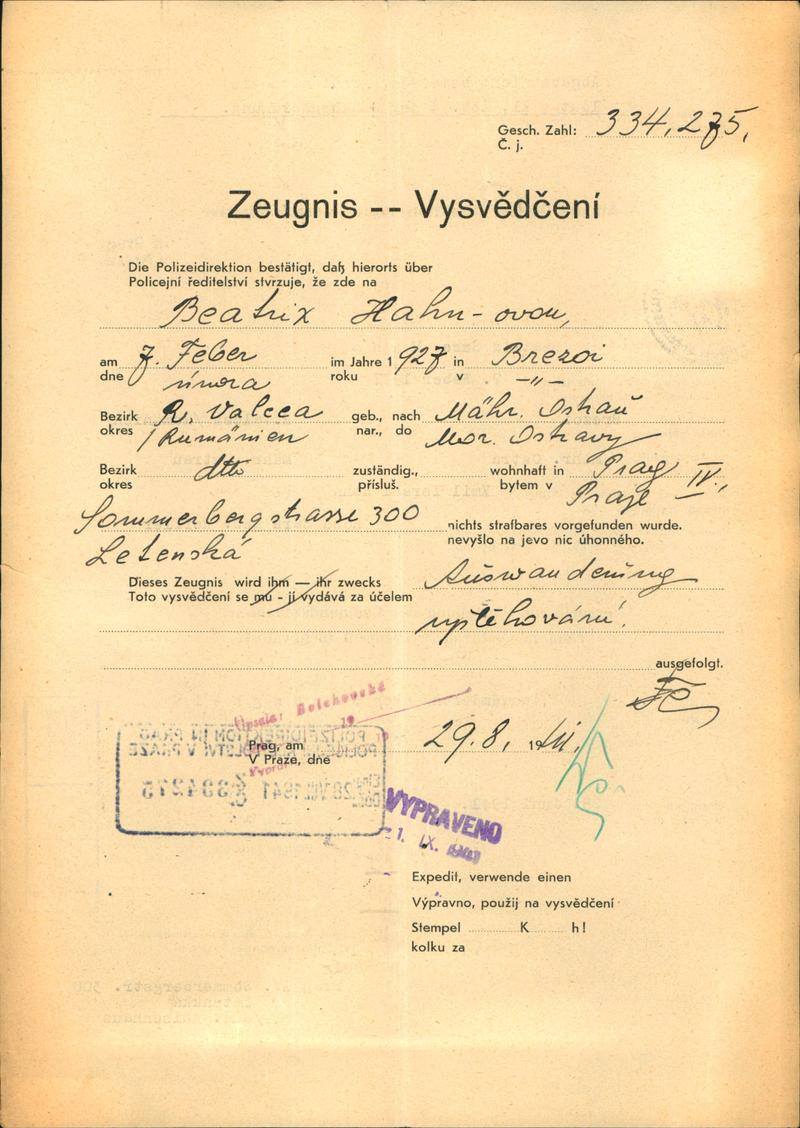 Gesch. Zahl: 334.275,
Č. j.
Zeugnis -- Vysvědčení
Die Polizeidirektion bestätigt, daß hierorts über
Policejní ředitelství stvrzuje, že zde na
Beatrix Hahn-ovou,
am 7. Feber im Jahre 1927 in Brezoi
dne února roku v -"-
Bezirk R. Valcea geb., nach Mähr. Ostrau
okres /Rumänien nar., do Mor. Ostravy
Bezirk dtto zuständig., wohnhaft in Prag IV.,
okres přísluš. bytem v Praze
Sommerbergstrasse 300 nichts strafbares vorgefunden wurde.
Letenská nevyšlo na jevo nic úhonného.
Dieses Zeugnis wird ihm — ihr zwecks Auswanderung
Toto vysvědčení se mu - jí vydává za účelem vystěhování.
ausgefolgt.
Prag, am 29.8.
V Praze, dne
POLIZEIDIREKTION IN PRAG
POLICEJNÍ ŘEDITELSTVÍ V PRAZE
28. VIII. 1941 334275
VYPRAVENO
1. IX. 1941
Expedit, verwende einen
Výpravno, použij na vysvědčení
Stempel K h!
kolku za